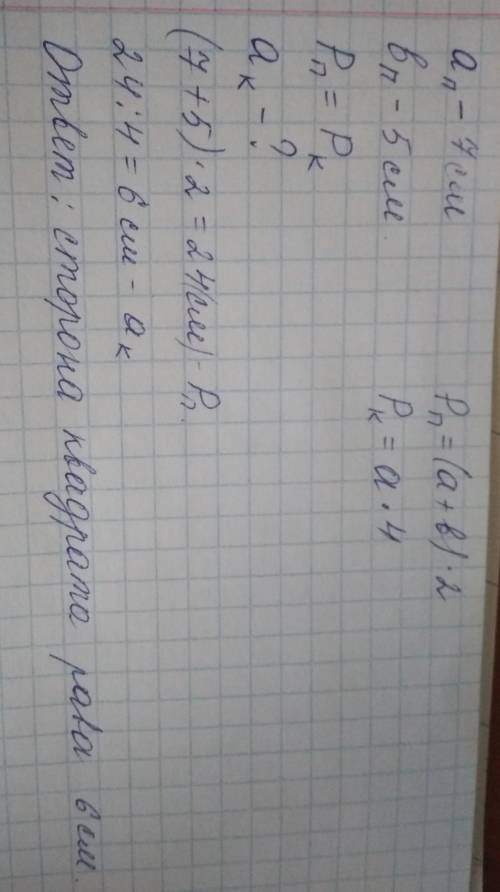 aп - 7 см
вп - 5 см.
Pп = (a + в) · 2
Pк = a · 4
Pп = Pк
aк - ?
(7 + 5) · 2 = 24 (см) - Pп.
24 : 4 = 6 см - aк
Ответ: сторона квадрата равна 6 см.